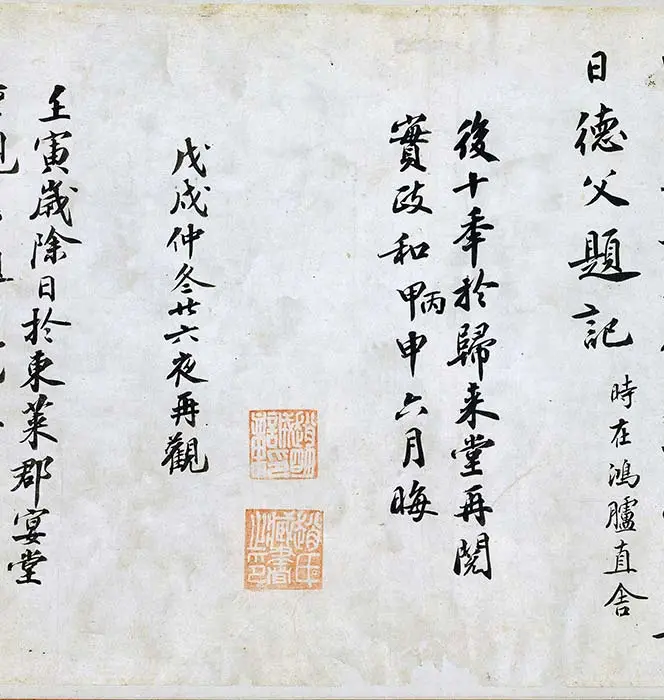 日德父題記
時在鴻臚直舍
後十年於歸来堂再閱
實政和甲丙申六月晦
戊戌仲冬廿六夜再觀
壬寅歲除日於東萊郡宴堂